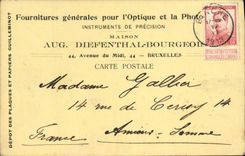 Fournitures générales pour l'Optique et la Photo
INSTRUMENTS DE PRÉCISION
MAISON
AUG. DIEPENTHAL-BOURGEOIS
44, Avenue du Midi, 44 — BRUXELLES
CARTE POSTALE
Madame Gallier
14 rue de Cerisy 14
France Amiens-Somme
DÉPOT DES PLAQUES ET PAPIERS GUILLEMINOT